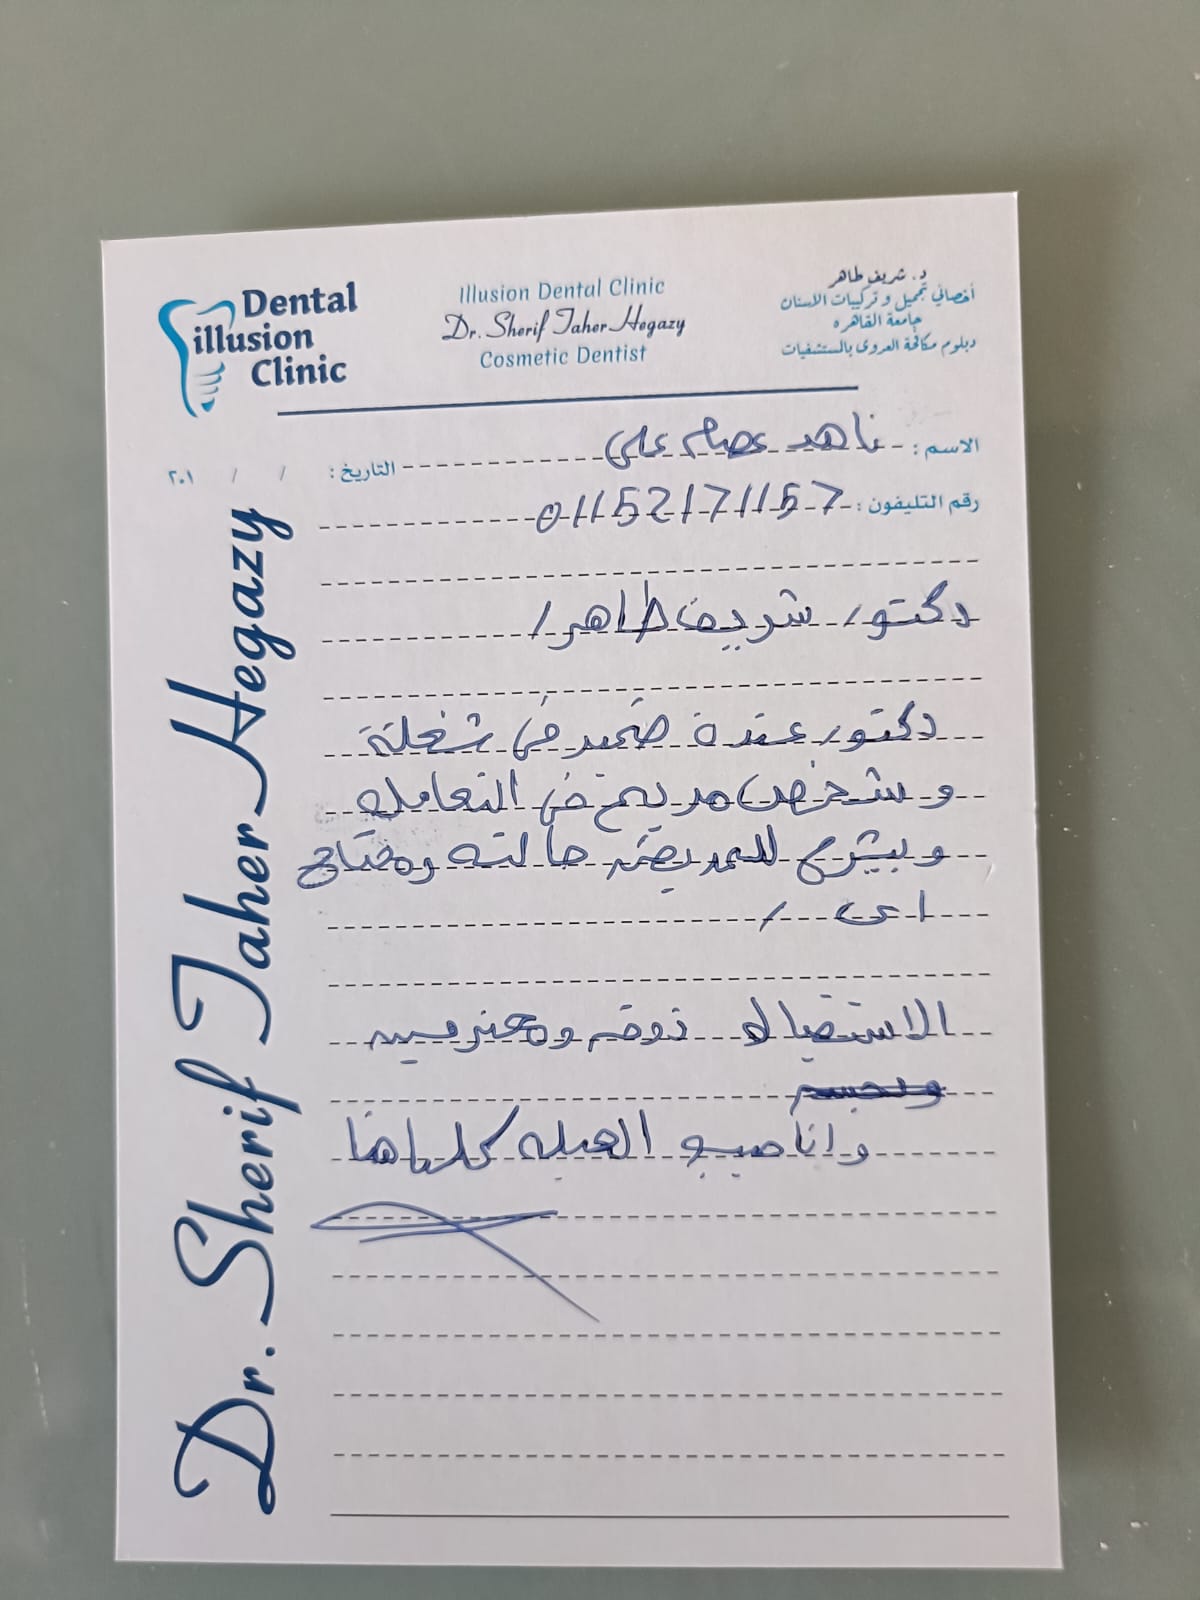 Dental
illusion
Clinic
Illusion Dental Clinic
Dr. Sherif Taher Hegazy
Cosmetic Dentist
د. شريف طاهر
أخصائي تجميل وتركيبات الاسنان
جامعة القاهره
دبلوم مكافحة العدوى بالمستشفيات
الاسم : ناهد عصام على
التاريخ : / / ٢٠١
رقم التليفون : 01152171157
دكتور شريف طاهر /
دكتور عندة ضمير فى شغلة
و شخص مريح فى التعامل
و بيشرح للمريض حالته ومحتاج
اى /
الاستقبال ذوق ومحترمين
وانا جيب العيله كلها هنا
Dr. Sherif Taher Hegazy